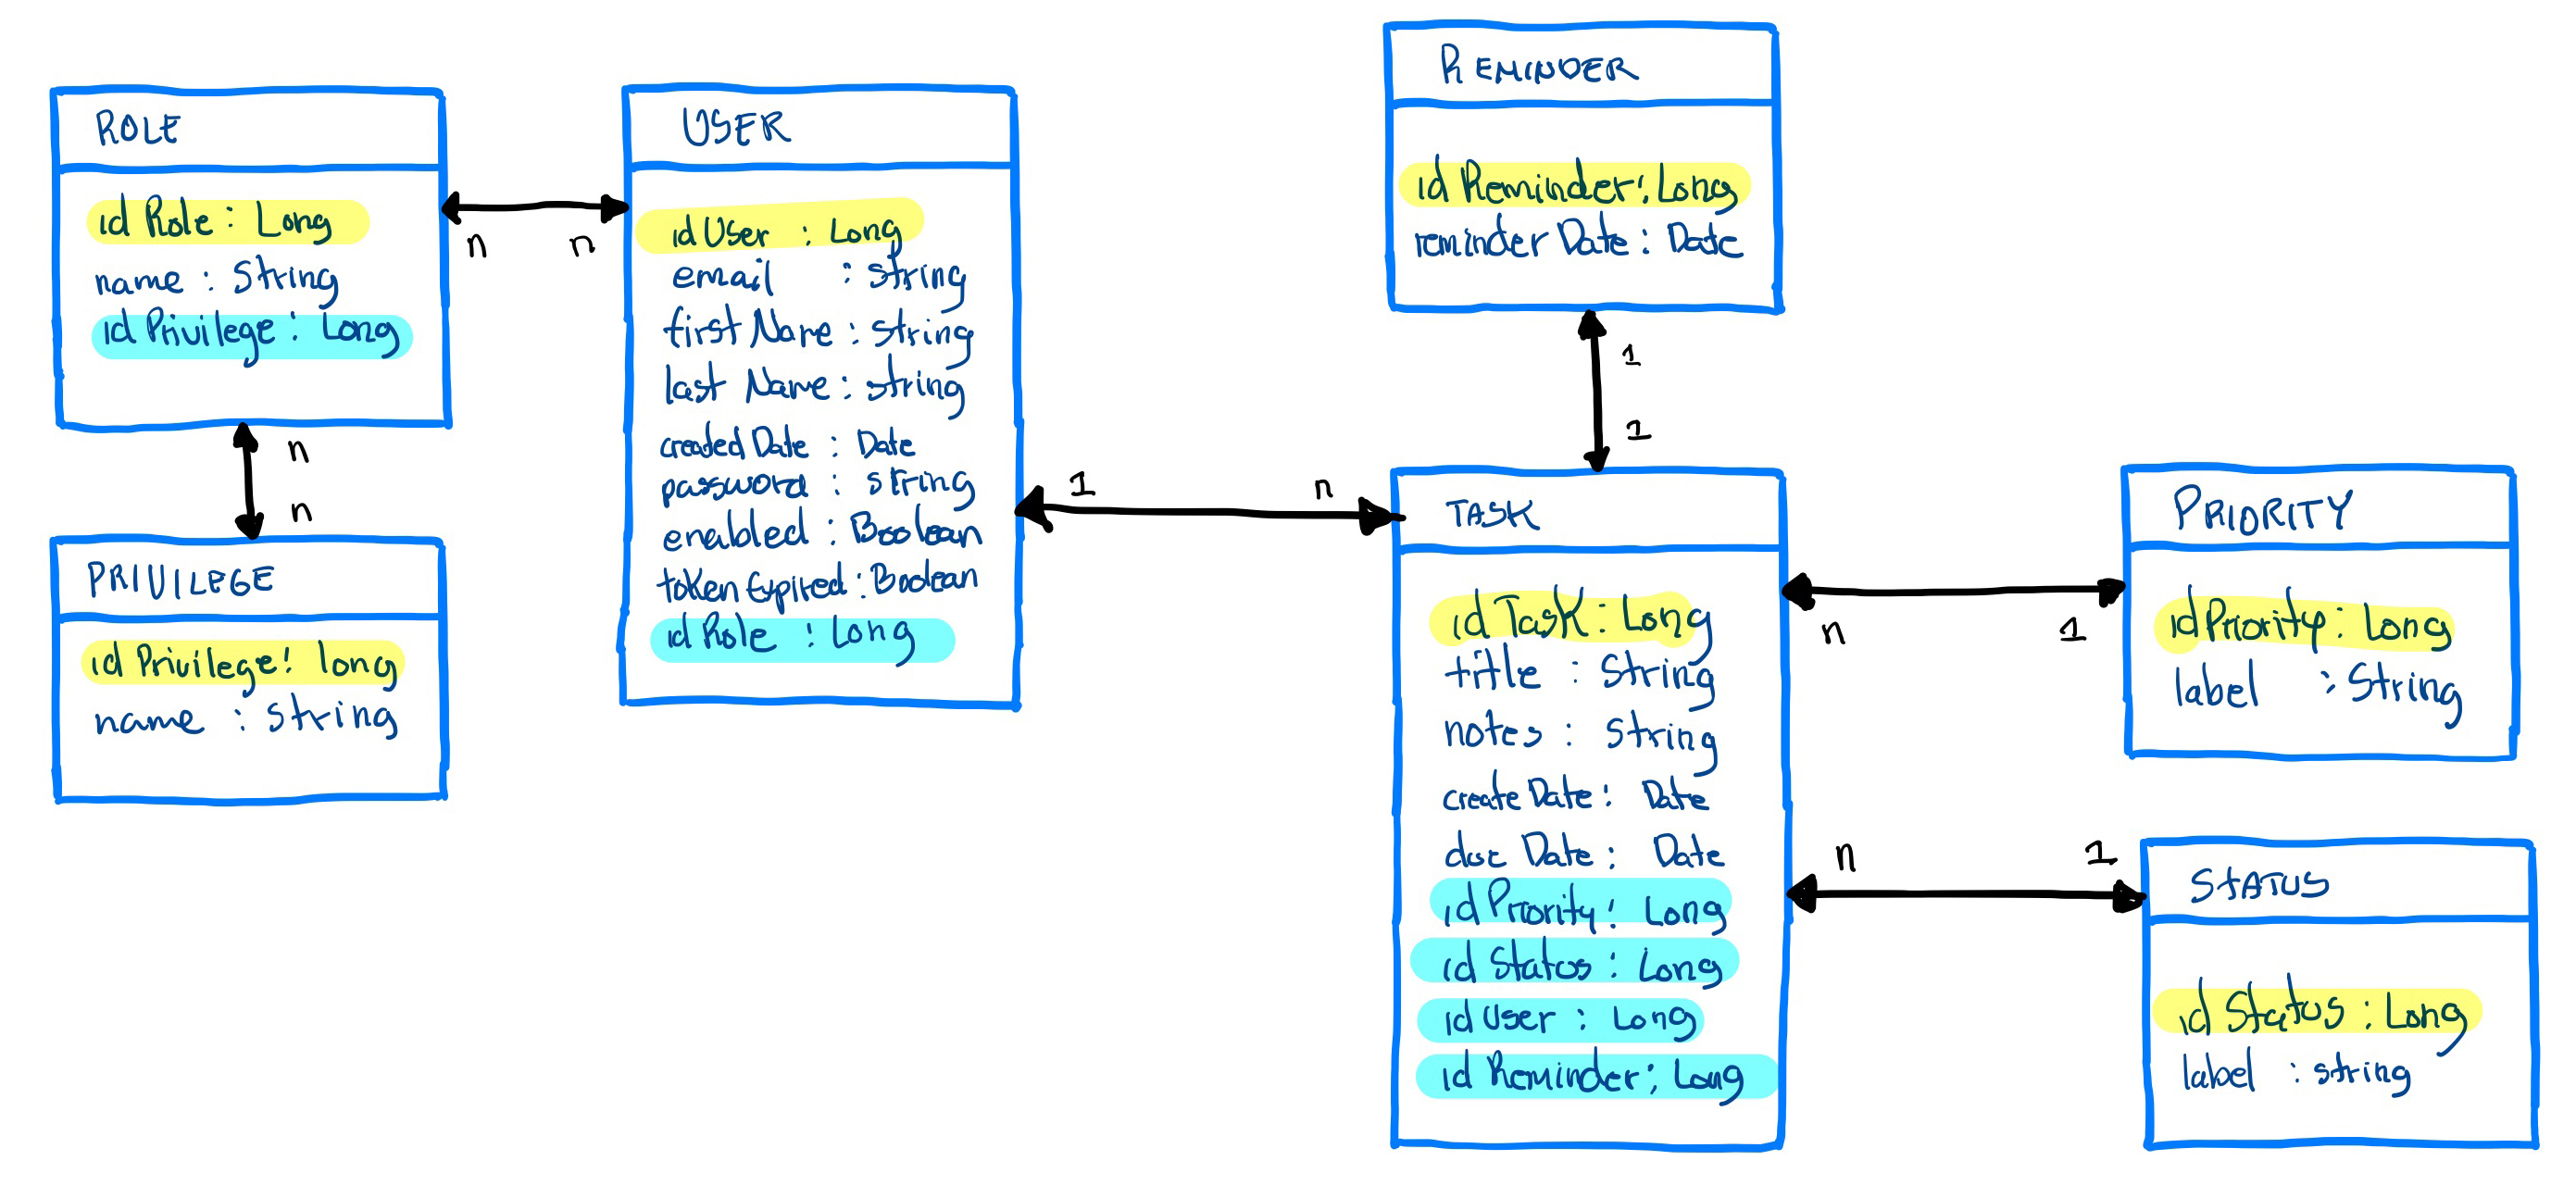 ROLE
id Role : Long
name : String
id Privilege : Long
n
n
n
n
PRIVILEGE
id Privilege : long
name : string
USER
id User : Long
email : string
first Name : string
last Name : string
created Date : Date
password : string
enabled : Boolean
token Expired : Boolean
id Role : Long
1
n
REMINDER
id Reminder : Long
reminder Date : Date
1
1
TASK
id Task : Long
title : String
notes : string
create Date : Date
due Date : Date
id Priority : Long
id Status : Long
id User : Long
id Reminder : Long
n
1
n
1
PRIORITY
id Priority : Long
label : String
STATUS
id Status : Long
label : string